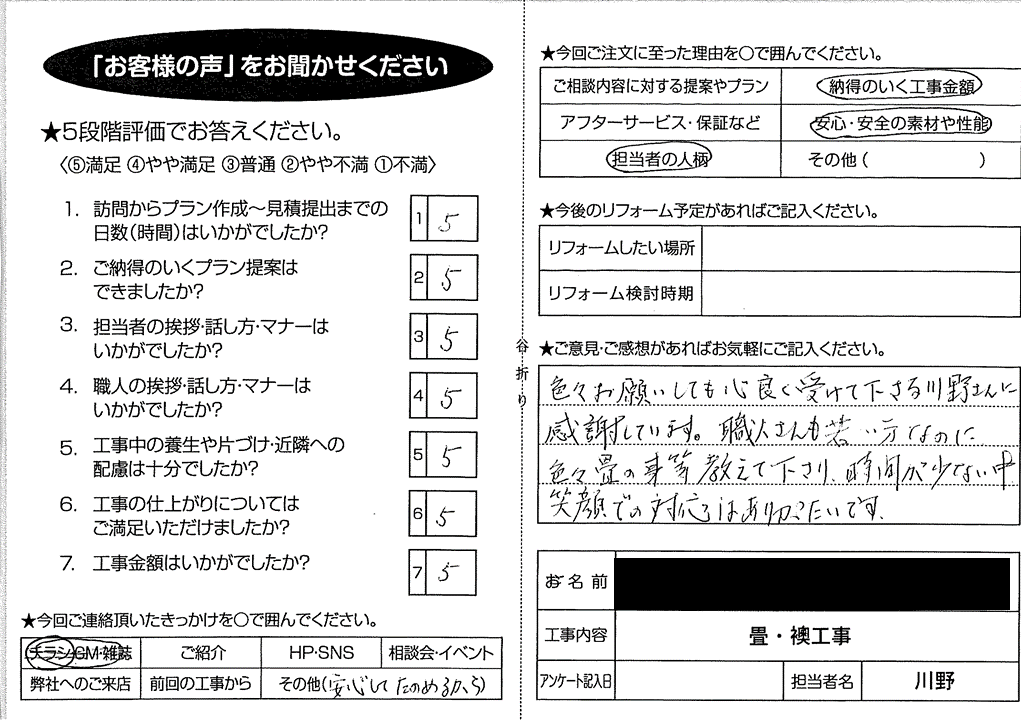 「お客様の声」をお聞かせください
★5段階評価でお答えください。
〈⑤満足 ④やや満足 ③普通 ②やや不満 ①不満〉
1. 訪問からプラン作成～見積提出までの
日数(時間)はいかがでしたか?
1 5
2. ご納得のいくプラン提案は
できましたか?
2 5
3. 担当者の挨拶・話し方・マナーは
いかがでしたか?
3 5
4. 職人の挨拶・話し方・マナーは
いかがでしたか?
4 5
5. 工事中の養生や片づけ・近隣への
配慮は十分でしたか?
5 5
6. 工事の仕上がりについては
ご満足いただけましたか?
6 5
7. 工事金額はいかがでしたか?
7 5
★今回ご連絡頂いたきっかけを○で囲んでください。
チラシ・GM・雑誌 ご紹介 HP・SNS 相談会・イベント
弊社へのご来店 前回の工事から その他(安心してたのめるから)
谷折り
★今回ご注文に至った理由を○で囲んでください。
ご相談内容に対する提案やプラン 納得のいく工事金額
アフターサービス・保証など 安心・安全の素材や性能
担当者の人柄 その他( )
★今後のリフォーム予定があればご記入ください。
リフォームしたい場所
リフォーム検討時期
★ご意見・ご感想があればお気軽にご記入ください。
色々お願いしても心良く受けて下さる川野さんに
感謝しています。職人さんも若い方なのに
色々畳の事等教えて下さり、時間が少ない中
笑顔での対応はありがたいです。
お名前
工事内容 畳・襖工事
アンケート記入日 担当者名 川野